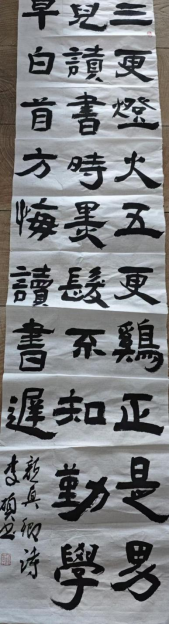 三更燈火五更鷄正是男
兒讀書時黑髮不知勤學
早白首方悔讀書遲
顏真卿詩
李書